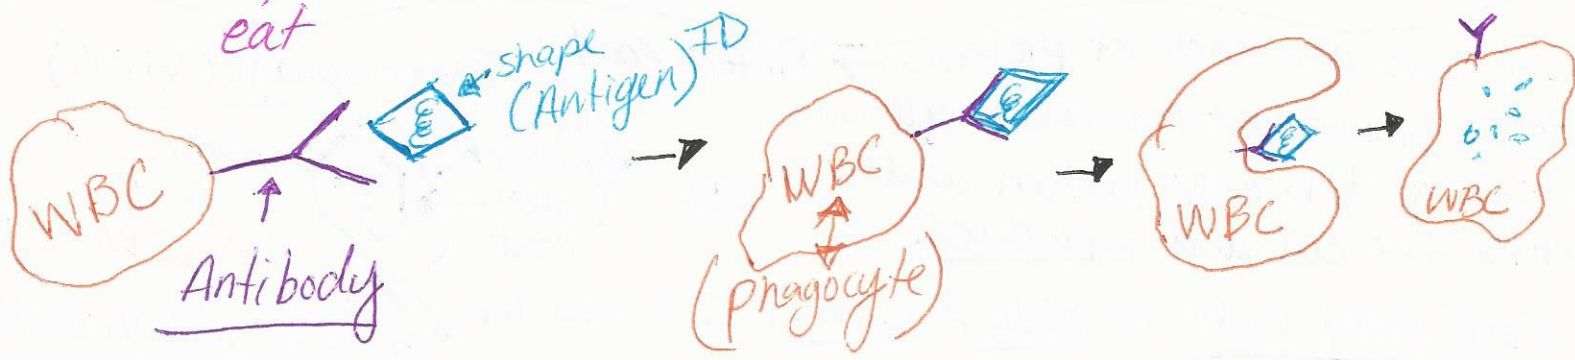 eat
shape
(Antigen) ID
WBC
Antibody
WBC
(phagocyte)
WBC
WBC